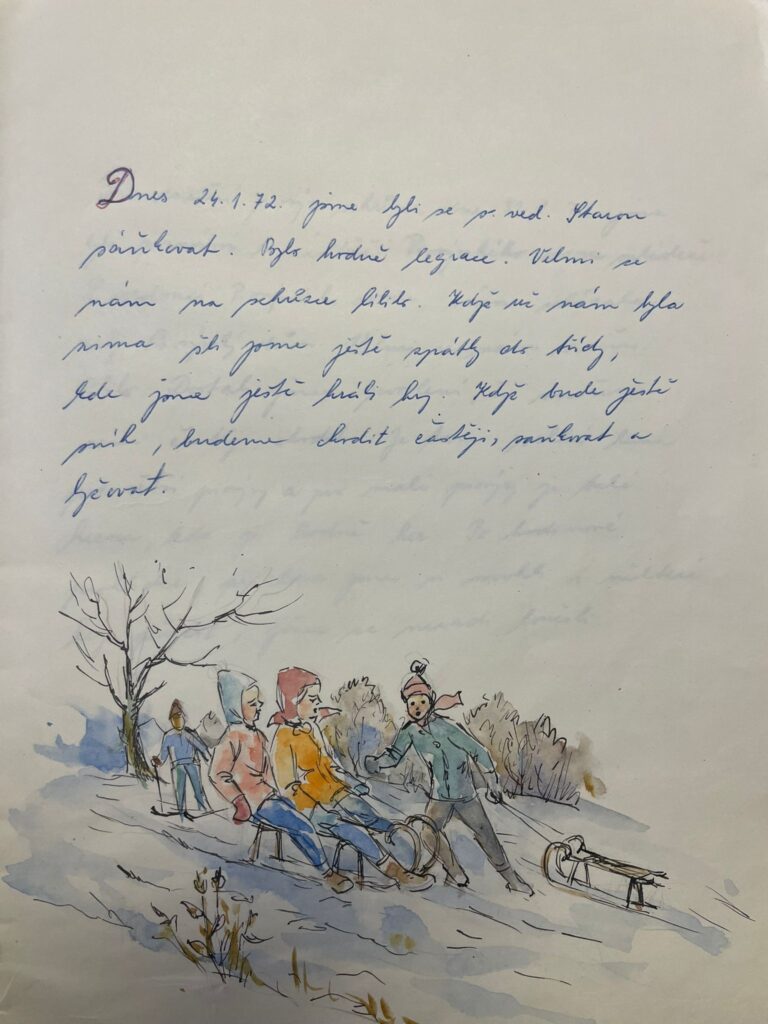 Dnes 24.1.72. jsme byli se s. ved. Starou
sáňkovat. Bylo hodně legrace. Velmi se
nám na schůzce líbilo. Když už nám byla
zima šli jsme ještě zpátky do třídy,
kde jsme ještě hráli hry. Když bude ještě
sníh, budeme chodit častěji, saňkovat a
lyžovat.